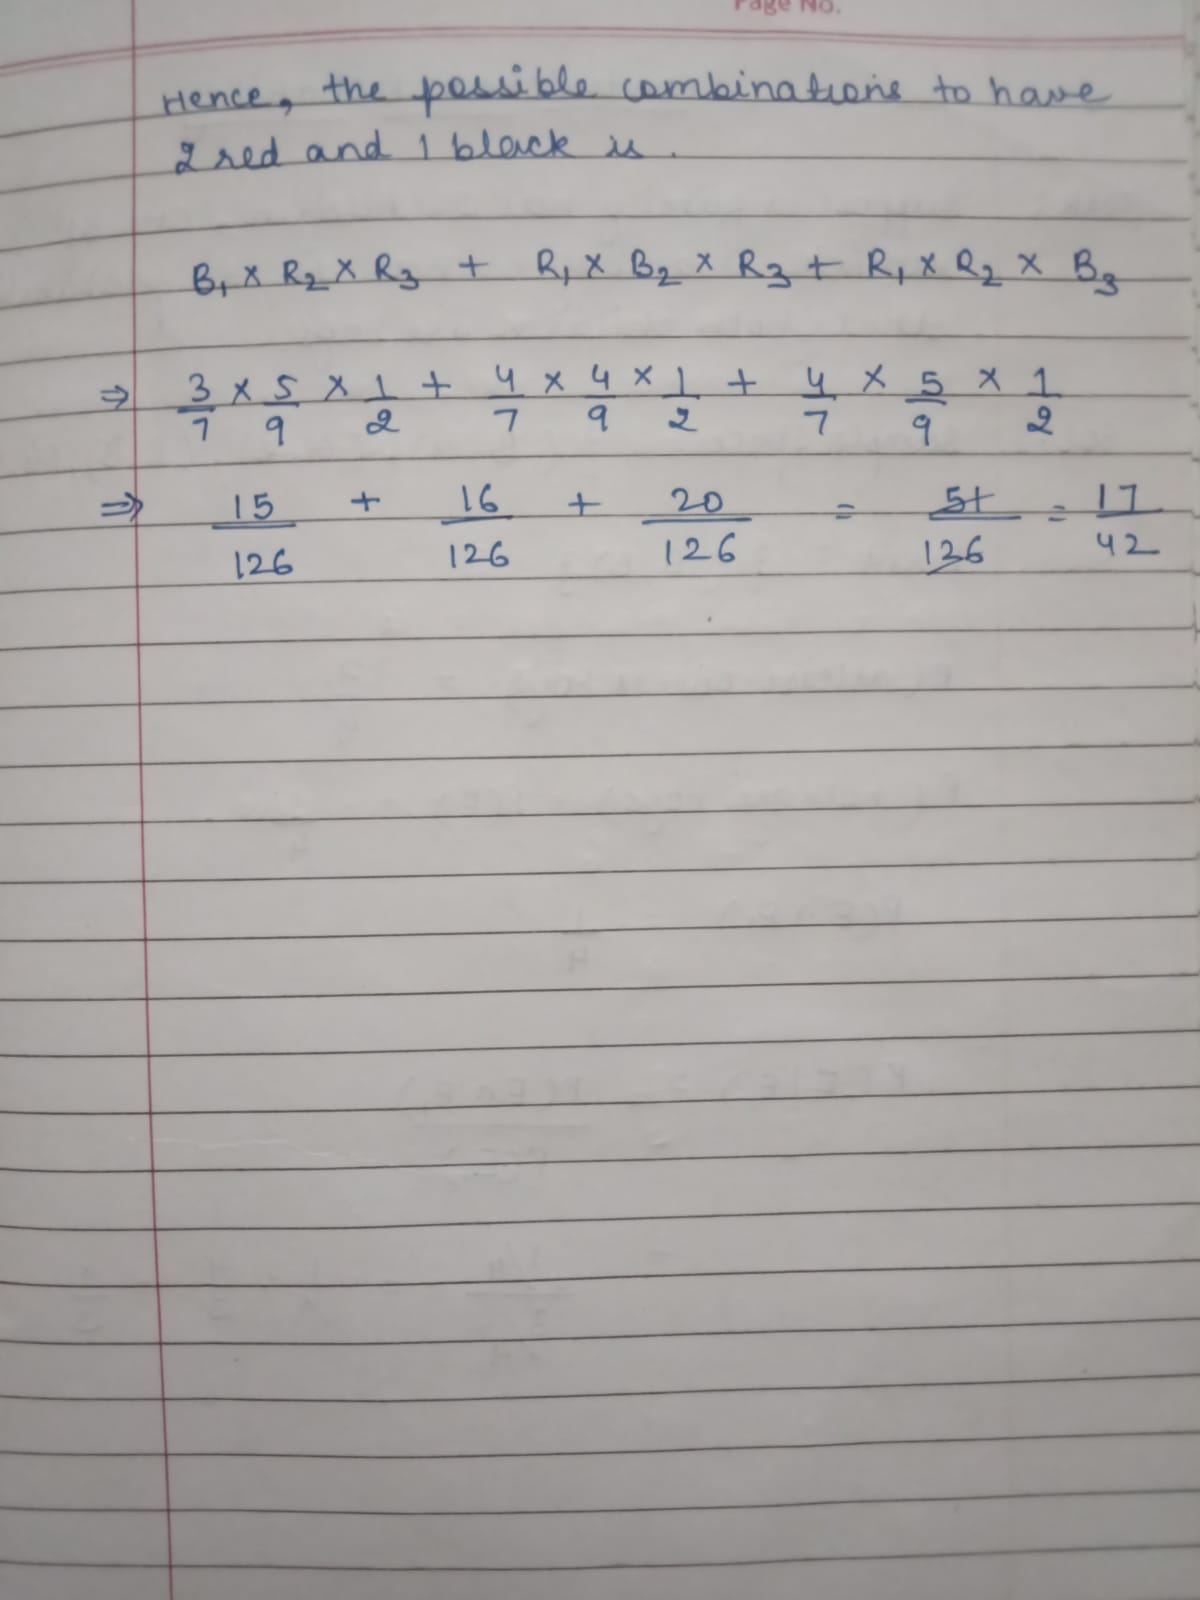 Page No.
Hence, the possible combinations to have
2 red and 1 black is.
B₁ × R₂ × R₃ + R₁ × B₂ × R₃ + R₁ × R₂ × B₃
⇒ 3/7 × 5/9 × 1/2 + 4/7 × 4/9 × 1/2 + 4/7 × 5/9 × 1/2
⇒ 15/126 + 16/126 + 20/126 = 51/126 = 17/42